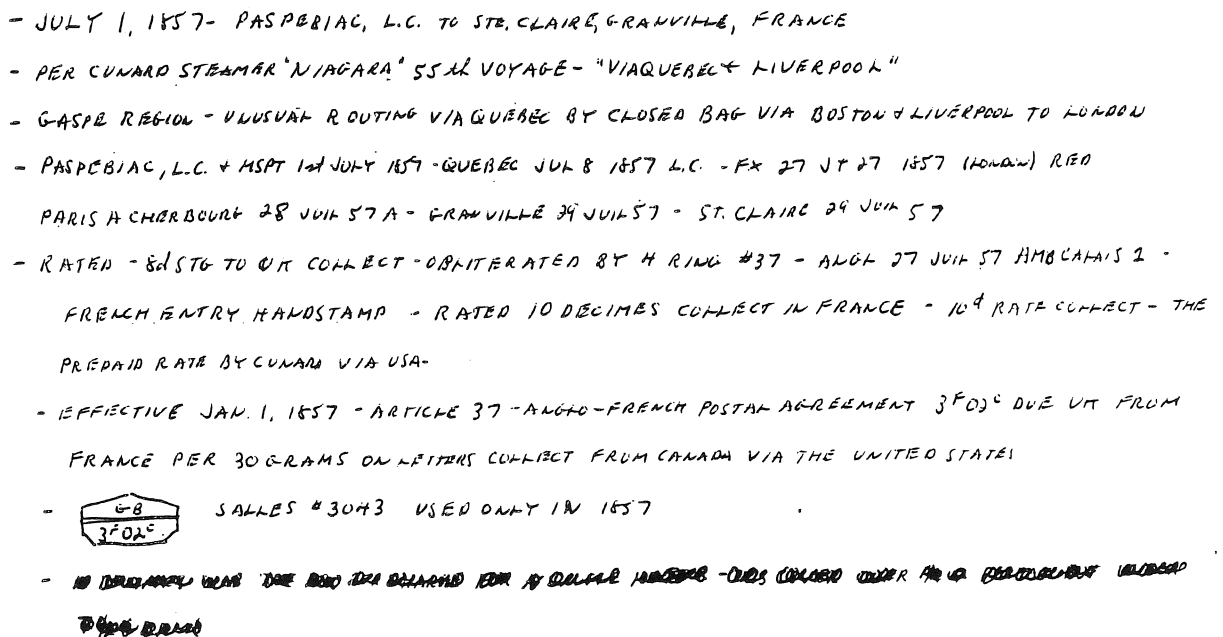 - JULY 1, 1857- PASPEBIAC, L.C. TO STE. CLAIRE, GRANVILLE, FRANCE
- PER CUNARD STEAMER "NIAGARA" 55th VOYAGE - "VIA QUEBEC & LIVERPOOL"
- GASPE REGION - UNUSUAL ROUTING VIA QUEBEC BY CLOSED BAG VIA BOSTON & LIVERPOOL TO LONDON
- PASPEBIAC, L.C. & MSPT 1st JULY 1857 - QUEBEC JUL 8 1857 L.C. - FX 27 JY 27 1857 (LONDON) RED
PARIS A CHERBOURG 28 JUIL 57 A - GRANVILLE 29 JUIL 57 - ST. CLAIRE 29 JUIL 57
- RATED - 8d STG TO UK COLLECT - OBLITERATED BY 4 RING #37 - ANGL 27 JUIL 57 AMB CALAIS 2 -
FRENCH ENTRY HANDSTAMP - RATED 10 DECIMES COLLECT IN FRANCE - 10d RATE COLLECT - THE
PREPAID RATE BY CUNARD VIA USA-
- EFFECTIVE JAN. 1, 1857 - ARTICLE 37 - ANGLO-FRENCH POSTAL AGREEMENT 3F02C DUE UK FROM
FRANCE PER 30 GRAMS ON LETTERS COLLECT FROM CANADA VIA THE UNITED STATES
- GB 3F02C SALLES #3043 USED ONLY IN 1857